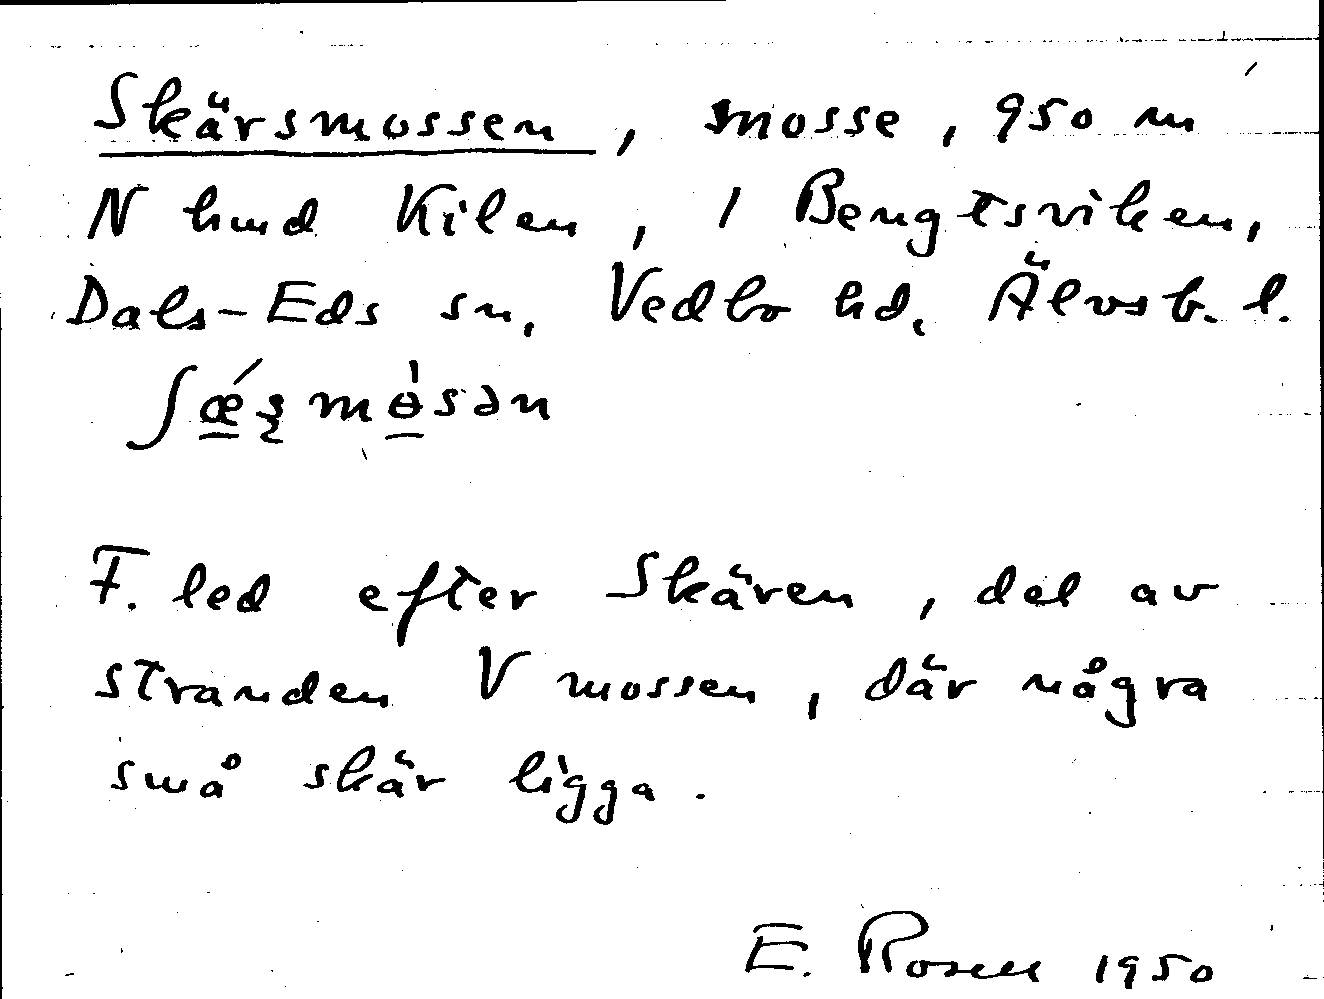 Skärsmossen, mosse, 950 m
N hmd Kilen, 1 Bengtsviken,
Dals-Eds sn, Vedbo hd, Älvsb. l.
F. led efter Skären, del av
stranden V mossen, där några
små skär ligga.
E. Rosell 1950